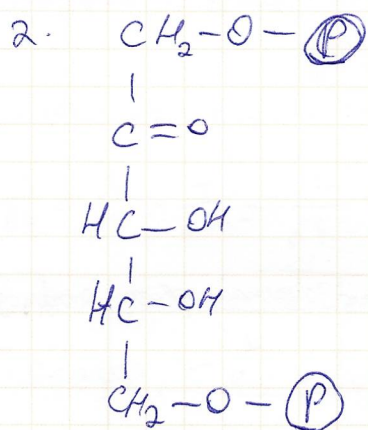 2. CH₂-O-P
C=O
HC-OH
HC-OH
CH₂-O-P